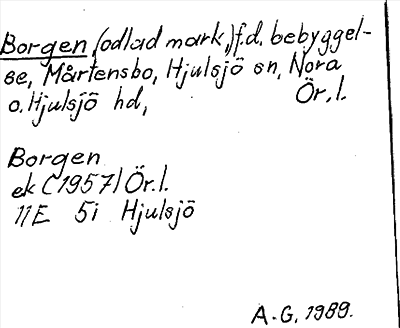 Borgen, (odlad mark,) f.d. bebyggel-
se, Mårtensbo, Hjulsjö sn, Nora
o. Hjulsjö hd, Ör. l.
Borgen
ek (1957) Ör. l.
11E 5i Hjulsjö
A.-G. 1989.